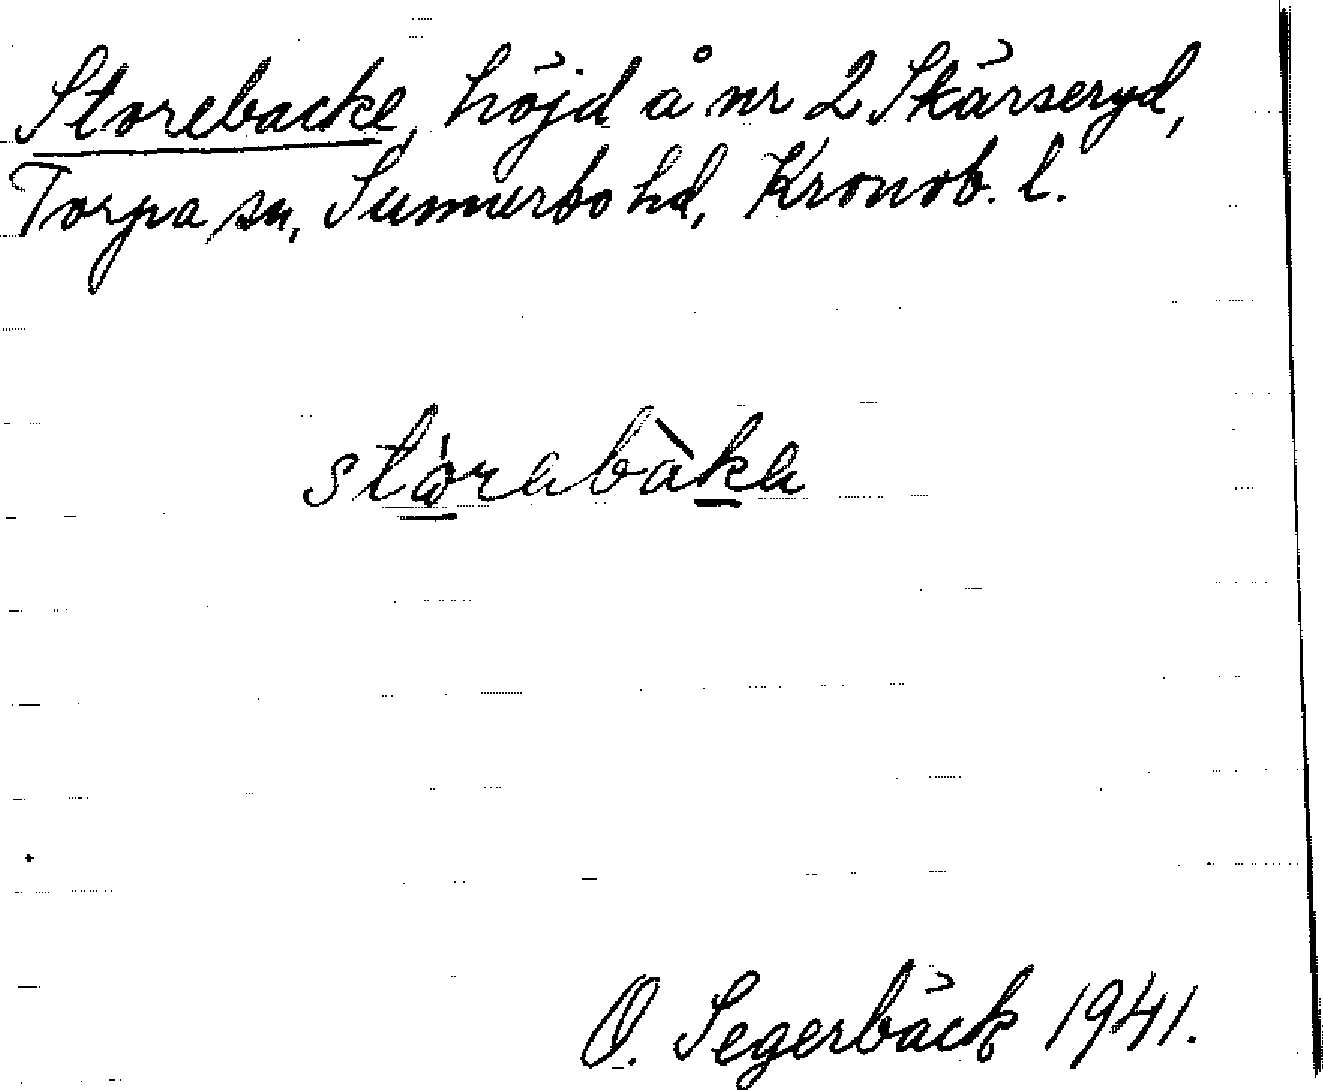 Storebacke, höjd å nr 2 Skärseryd,
Torpa sn, Sunnerbo hd, Kronob. l.
stórabàka
O. Segerbäck 1941.